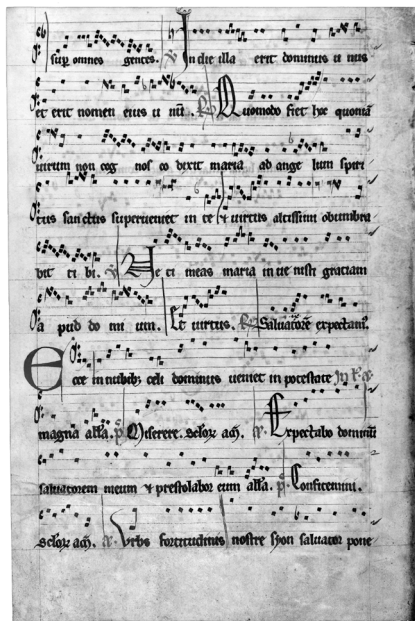 sup omnes gentes. In die illa erit dominus u nus
et erit nomen eius u nū. Quomodo fiet hoc quoniā
uirum non cog nos co dixit maria ad ange lum spiri
tus sanctus superueniet in te & uirtus altissimi obumbra
bit ti bi. Ne ti meas maria in ue nisti gratiam
a pud do mi num. Et uirtus. Saluatorē expectam.
Ecce in nubibꝫ celi dominus ueniet in potestate
magna alla. Miserere. Expectabo dominū
saluatorem meum & prestolabor eum alla. Confitemini.
Vrbs fortitudinis nostre syon saluator pone